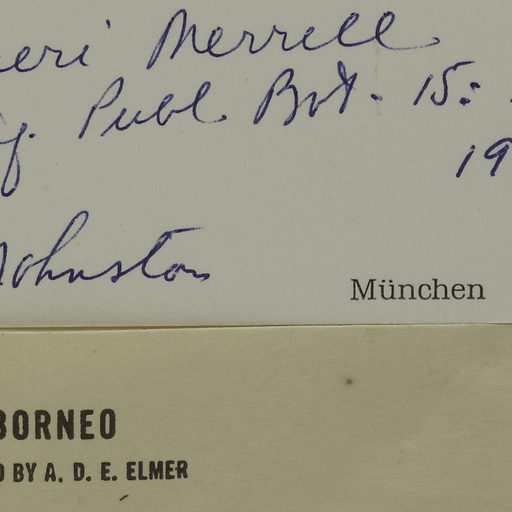 eri Merrell
f. Publ Bot. 15:
19
Johnston
München
BORNEO
D BY A. D. E. ELMER